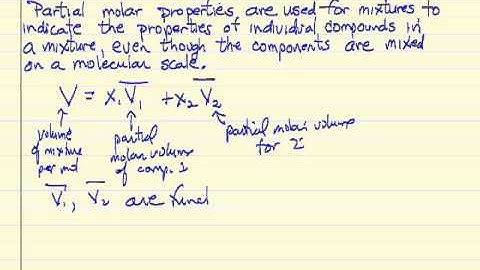 Partial molar properties are used for mixtures to
indicate the properties of individual compounds in
a mixture, even though the components are mixed
on a molecular scale.
V = x₁V̅₁ + x₂V̅₂
volume of mixture per mol
partial molar volume of comp. 1
partial molar volume for 2
V̅₁, V̅₂ are